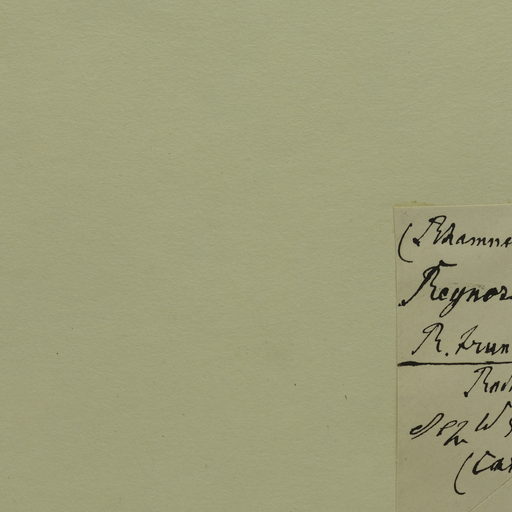 (Rhamna
Reynos
R. trun
Rad
W
(Car